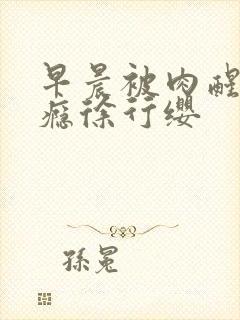 早晨被肉醒
瘾徐行缨
孫冕